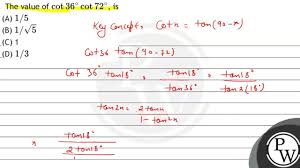 The value of cot 36° cot 72°, is
(A) 1/5
(B) 1/√5
(C) 1
(D) 1/3
Key Concept, Cot x = tan(90-x)
Cot 36 tan(90-72)
Cot 36° tan18° = tan18° / tan36° = tan18° / tan2(18°)
tan2x = 2tanx / 1-tan²x
= tan18° / 2tan18°